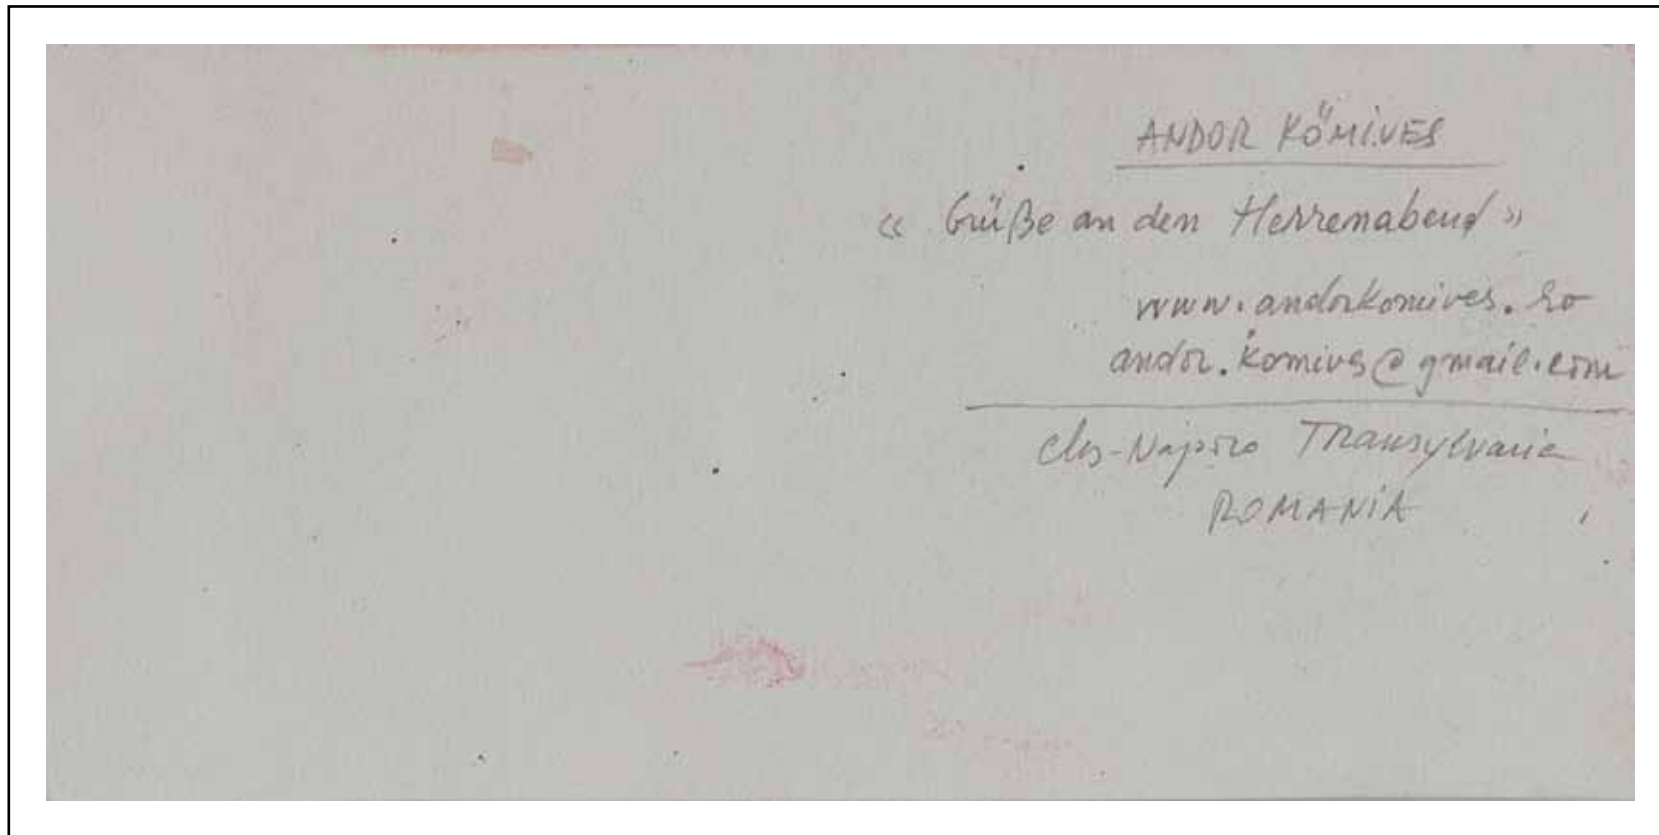 ANDOR KŐMIVES
« Grüße an den Herrenabend »
www.andorkomives.ro
andor.komives@gmail.com
Cluj-Napoca Transylvania
ROMANIA